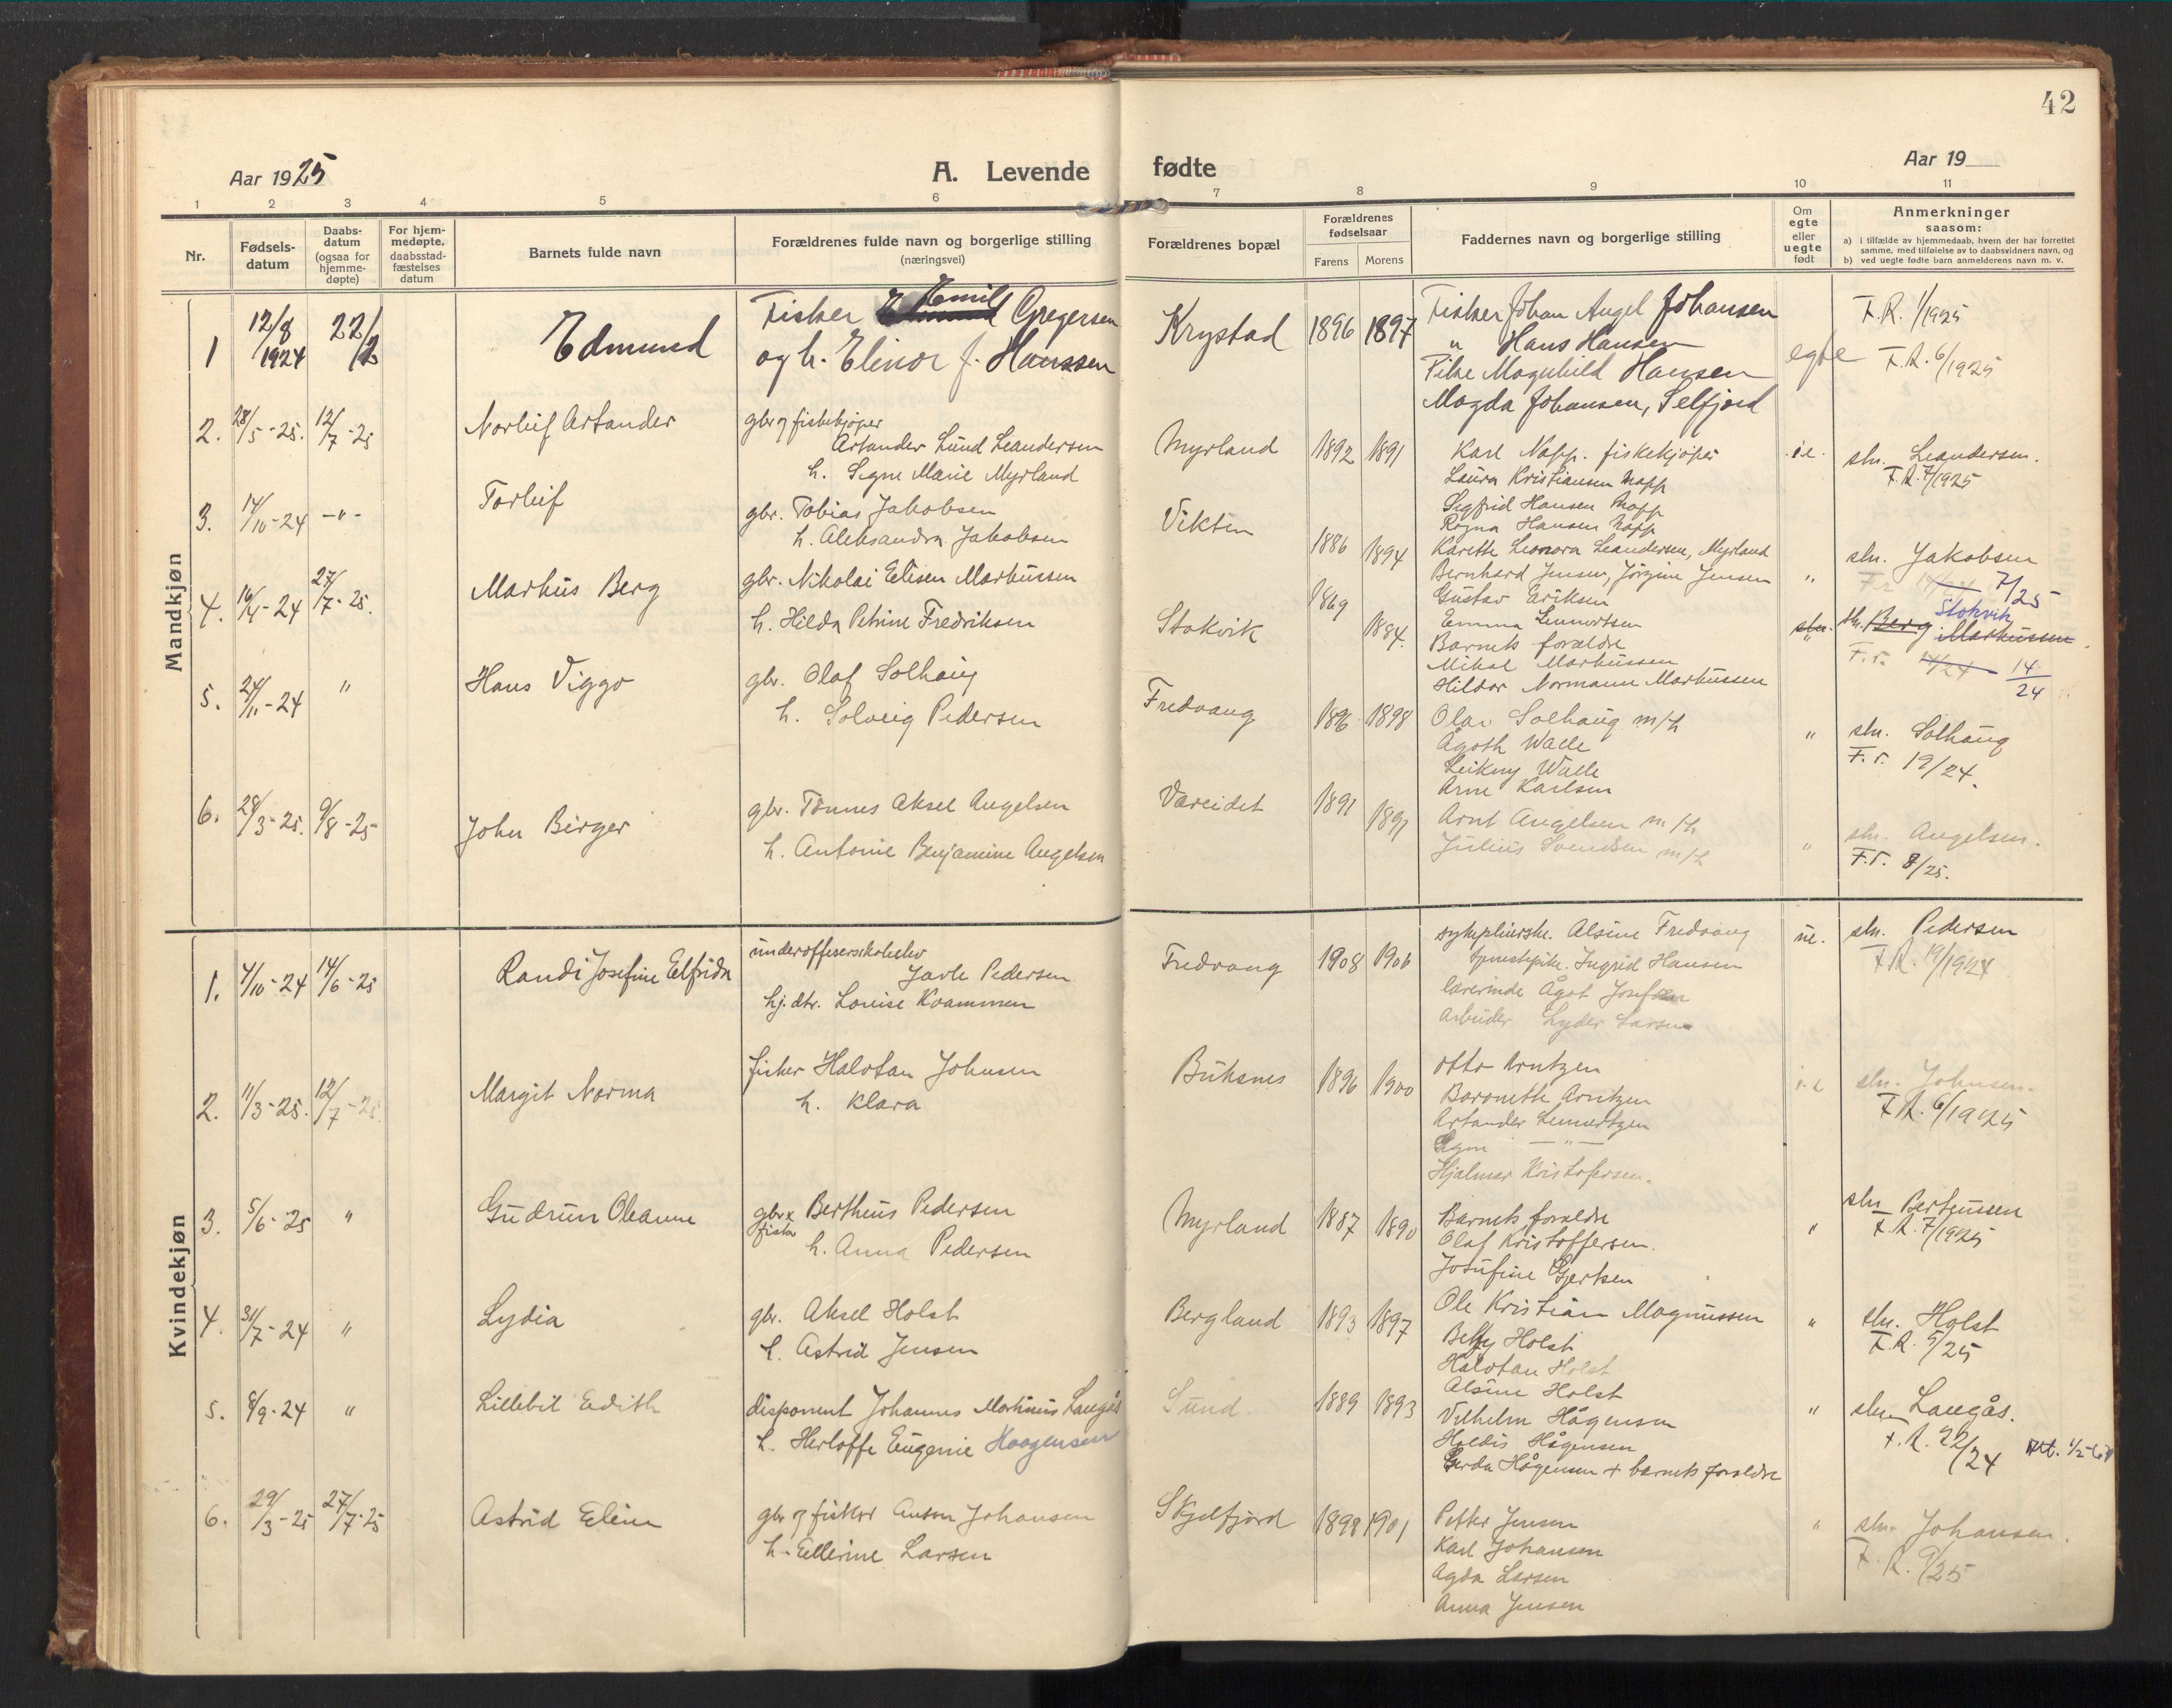 42
Aar 1925
A. Levende fødte
Aar 19
1 2 3 4 5 6 7 8 9 10 11
Nr.
Fødsels-
datum
Daabs-
datum
(ogsaa for
hjemme-
døpte)
For hjem-
medøpte,
daabsstad-
fæstelses
datum
Barnets fulde navn
Forældrenes fulde navn og borgerlige stilling
(næringsvei)
Forældrenes bopæl
Forældrenes
fødselsaar
Farens Morens
Faddernes navn og borgerlige stilling
Om
egte
eller
uegte
født
Anmerkninger
saasom:
a) i tilfælde av hjemmedaab, hvem der har forrettet
samme, med tilføielse av to daabsvidners navn, og
b) ved uegte fødte barn anmelderens navn m. v.
Mandkjøn
1 12/8 1924 22/2 Edmund
Fisker Emil Gregersen
og h. Elinor f. Hanssen
Krystad 1896 1897
Fisker Johan Angel Johansen
" Hans Hansen
Pike Magnhild Hansen
Magda Johansen, Selfjord
egte
F.R. 1/1925
F.R. 6/1925
2. 28/5-25. 12/7-25 Norleif Artander
gbr og fiskekjøper
Artander Lund Leandersen
h. Signe Marie Myrland
Myrland 1892 1891
Karl Napp. fiskekjøper
Laura Kristiansen Napp
Sigfrid Hansen Napp
Ragna Hansen Napp
Karette Leonora Leandersen, Myrland
i.e.
sln. Leandersen.
F.R. 7/1925
3. 14/10-24 -"- Torleif
gbr. Tobias Jakobsen
h. Aleksandra Jakobsen
Vikten 1886 1894
Bernhard Jensen, Jørgine Jensen
Gustav Eriksen
Emma Lennertsen
"
sln. Jakobsen
7/25
4. 16/4-24 27/7-25. Markus Berg
gbr. Nikolai Elisen Markussen
h. Hilda Petrine Fredriksen
Stokvik 1869 1884.
Barnets forældre
Mikal Markussen
Hildor Normann Markussen
"
sln. Berg Markussen
Stokvik
F.r. 14/24 14/24
5. 24/11-24 " Hans Viggo
gbr. Olaf Solhaug
h. Solveig Pedersen
Fredvang 1896 1898
Olav Solhaug m/h
Ågoth Walle
Leikny Walle
Arne Karlsen
"
sln. Solhaug
F.r. 19/24.
6. 28/3-25. 9/8-25 John Birger
gbr. Tønnes Aksel Angelsen
h. Antonie Benjamine Angelsen
Vareidet 1891 1891
Arnt Angelsen m/h
Julius Svendsen m/h
"
sln. Angelsen.
F.r. 8/25.
Kvindekjøn
1. 7/10-24 14/6-25 Randi Josefine Elfrida
underoffisersskoleelev
Jarle Pedersen
hj. dtr. Lovise Kvammen
Fredvang 1908 1906
sykepleierske. Alsine Fredvang
tjenestepike. Ingrid Hansen
lærerinde Ågot Josefsen
Arbeider Lyder Larsen
ue.
sln. Pedersen
F.R. 19/1924
2. 11/3-25. 12/7-25. Margit Norma
fisker Halvtan Johnsen
h. Klara
Buksnes 1896 1900
Otto Arntzen
Baronette Arntzen
Artander Lennertzen
Signe — " —
Hjalmar Kristofersen.
i.e
sln. Johnsen.
F.R. 6/1925
3. 5/6-25 " Gudrun Oleanne
gbr x fisker Bertheus Pedersen
h. Anna Pedersen
Myrland 1887 1890
Barnets forældre
Olaf Kristoffersen.
Josefine Gjertsen
"
sln Berteussen
F.R. 7/1925
4. 31/7-24 " Lydia
gbr. Aksel Holst
h. Astrid Jensen
Bergland 1893 1897
Ole Kristian Magnussen
Betzy Holst
Halvtan Holst
Alsine Holst
"
sln. Holst
F.R. 5/25
5. 8/9-24 " Lillebil Edith
disponent Johannes Martinius Langås
h. Herloffe Eugenie Haagensen
Sund. 1889 1893
Vilhelm Hågensen
Haldis Hågensen
Gerda Hågensen + barnets forældre
"
sln Langås.
F.R. 22/24
6. 29/3-25 27/7-25 Astrid Eline
gbr og fisker Anton Johansen
h. Ellerine Larsen
Skjelfjord 1898 1901
Petter Jensen
Karl Johansen
Agda Larsen
Anna Jensen
"
sln. Johansen.
F.R. 9/25